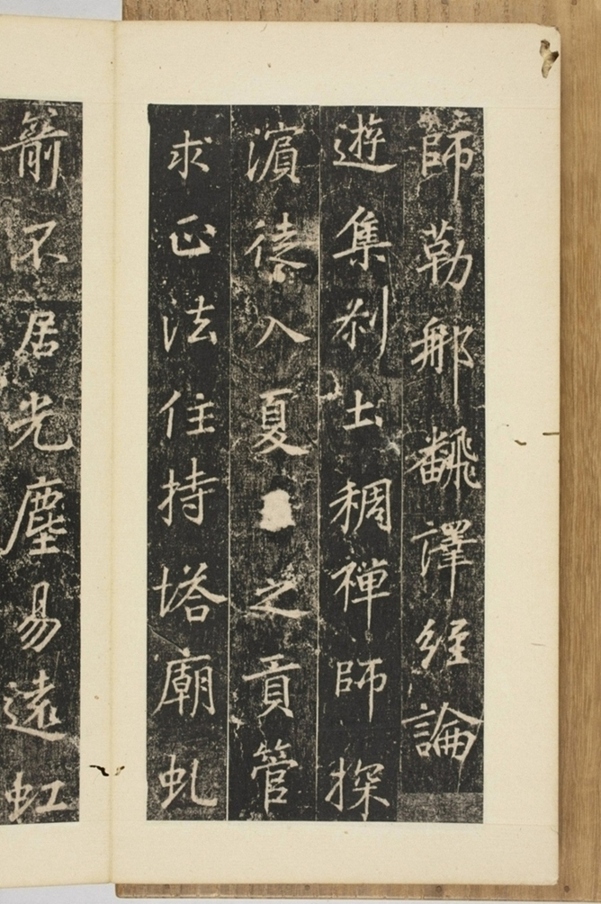 師勒那飜譯經論
遊集剎土稠禪師探
濵德入夏之貢管
求正法住持塔廟虬
箭不居光塵易遠虹